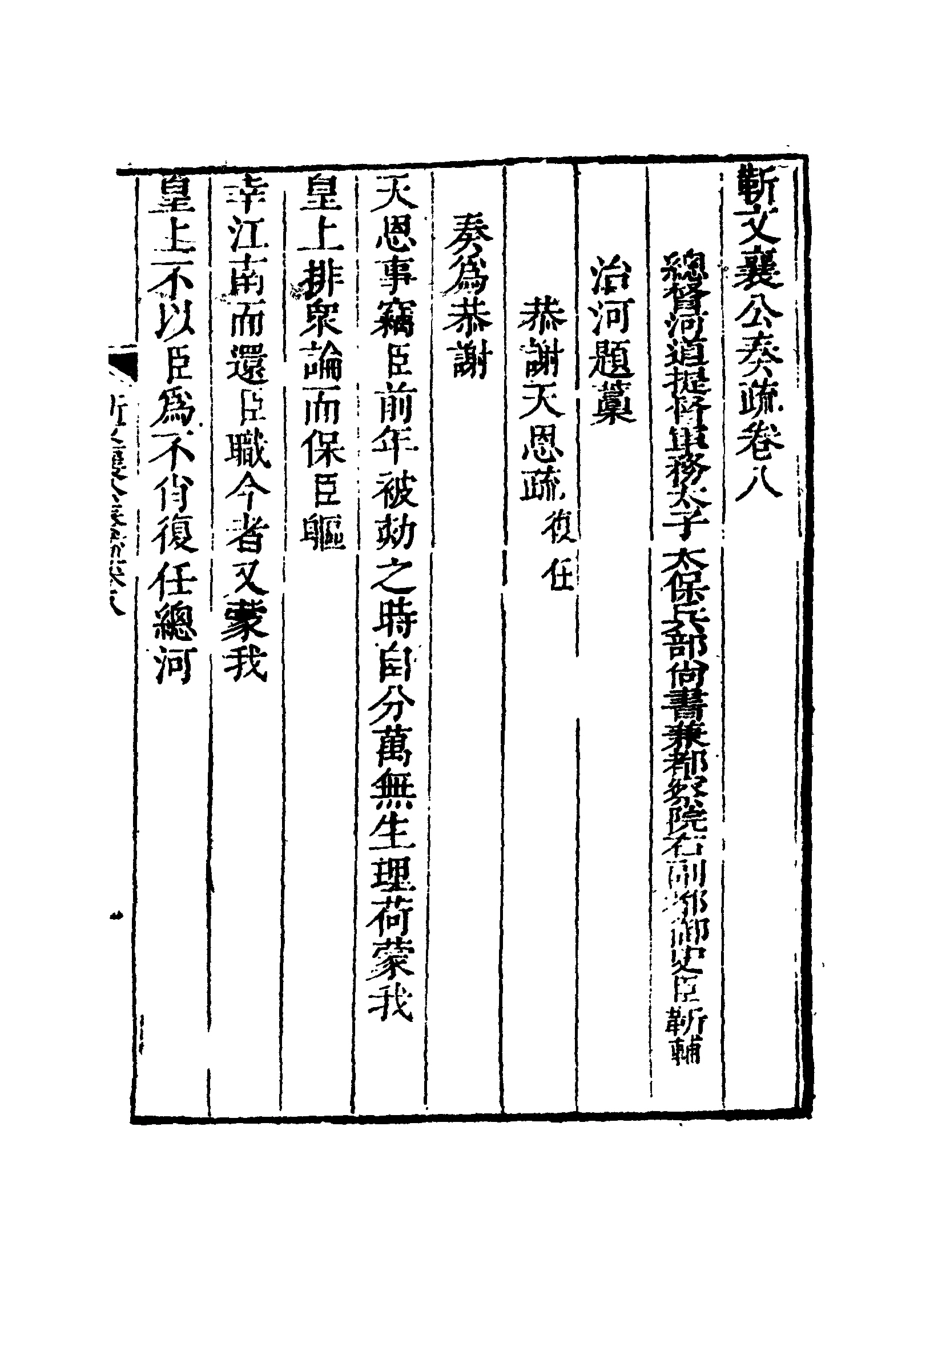 靳文襄公奏疏卷八
總督河道提督軍務太子太保兵部尚書兼都察院右副都御史臣靳輔
治河題藁
恭謝天恩疏復任
奏爲恭謝
天恩事竊臣前年被劾之時自分萬無生理荷蒙我
皇上排衆論而保臣軀
幸江南而還臣職今者又蒙我
皇上不以臣爲不肖復任總河